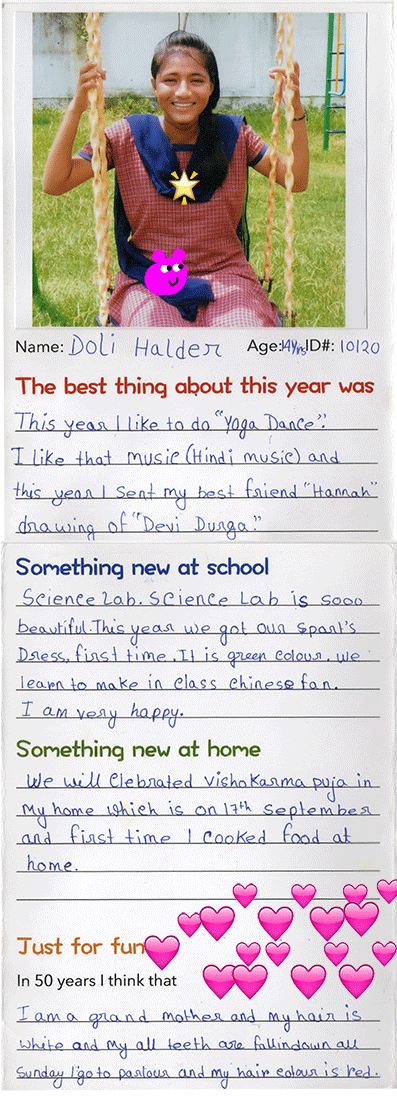 Name: Doli Halder Age: 14yrs ID#: 10120
The best thing about this year was
This year I like to do "Yoga Dance".
I like that music (Hindi music) and
this year I sent my best friend "Hannah"
drawing of "Devi Durga."
Something new at school
Science Lab. Science Lab is sooo
beautiful. This year we got our sport's
Dress, first time. It is green colour. we
learn to make in class chinese fan.
I am very happy.
Something new at home
We will Clebrated vishoKarma puja in
My home which is on 17th September
and first time I cooked food at
home.
Just for fun
In 50 years I think that
I am a grand mother and my hair is
white and my all teeth are fallindown all
Sunday I go to parlour and my hair colour is red.